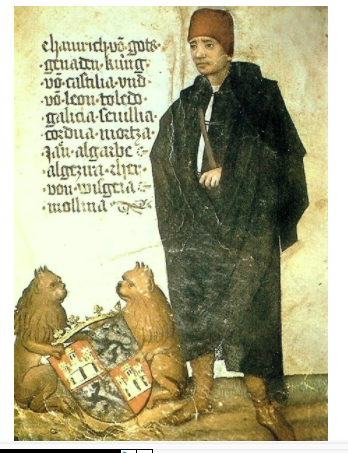 hainrich · võ · gots ·
genaden · küng ·
võ · castilia · vnd ·
võ · leon · toledo ·
galicia · seuillia ·
cordua · mortza ·
algarbe ·
algezira ·
von · wisgeia ·
mollina ·